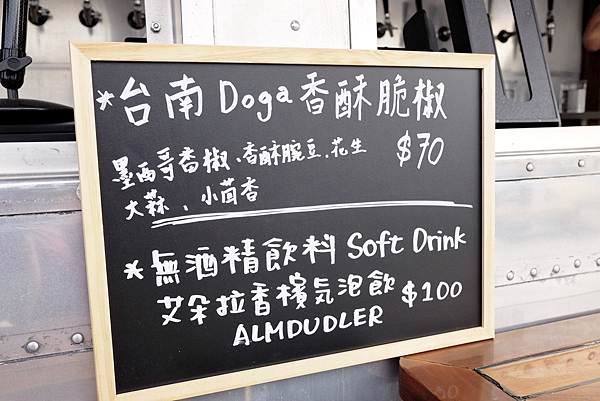 *台南Doga香酥脆椒
墨西哥香椒、香酥腕豆、花生 $70
大蒜、小茴香
*無酒精飲料 Soft Drink
艾朵拉香檳氣泡飲 $100
ALMDUDLER